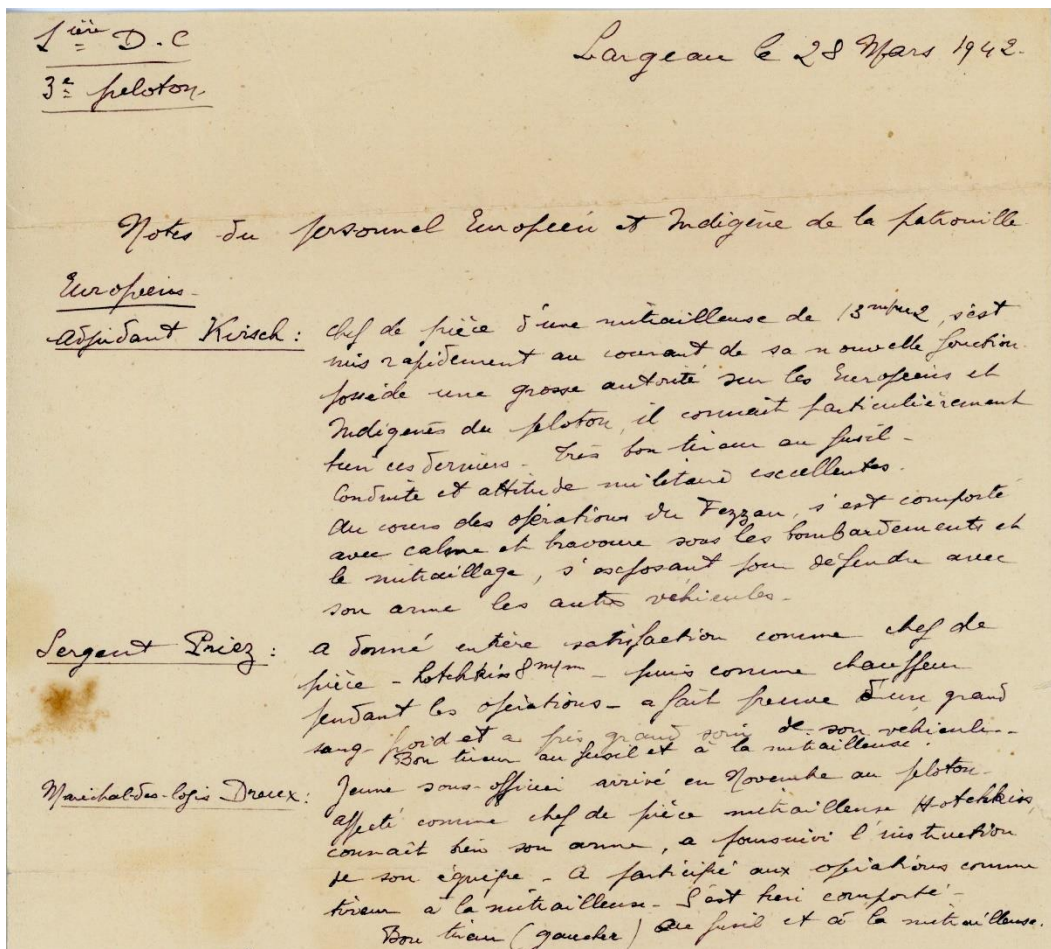 1ière D.C
3e peloton
Largeau le 28 Mars 1942.
Notes du personnel Européen et Indigène de la patrouille
Européens
Adjudant Kirsch : chef de pièce d'une mitrailleuse de 13m/m2, s'est
mis rapidement au courant de sa nouvelle fonction.
possède une grosse autorité sur les Européens et
Indigènes du peloton, il connait particulièrement
bien ces derniers - Très bon tireur au fusil -
Conduite et attitude militaire excellentes.
Au cours des opérations du Fezzan, s'est comporté
avec calme et bravoure sous les bombardements et
le mitraillage, s'exposant pour défendre avec
son arme les autres véhicules -
Sergent Priez : a donné entière satisfaction comme chef de
pièce - hotchkiss 8m/m - puis comme chauffeur
pendant les opérations - a fait preuve d'un grand
sang-froid et a pris grand soin de son véhicule -
Bon tireur au fusil et à la mitrailleuse.
Maréchal-des-logis Dreux : Jeune sous-officier arrivé en Novembre au peloton -
affecté comme chef de pièce mitrailleuse Hotchkiss,
connait bien son arme, a poursuivi l'instruction
de son équipe - A participé aux opérations comme
tireur à la mitrailleuse - S'est bien comporté -
Bon tireur (gaucher) au fusil et à la mitrailleuse.